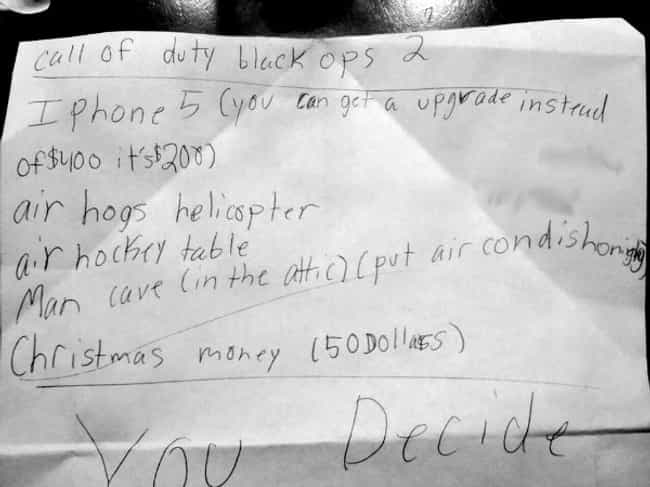 call of duty black ops 2
I phone 5 (you can get a upgrade instead
of $400 it's $200)
air hogs helicopter
air hockey table
Man cave (in the attic) (put air condishoning)
Christmas money (50 Dollars)
You Decide